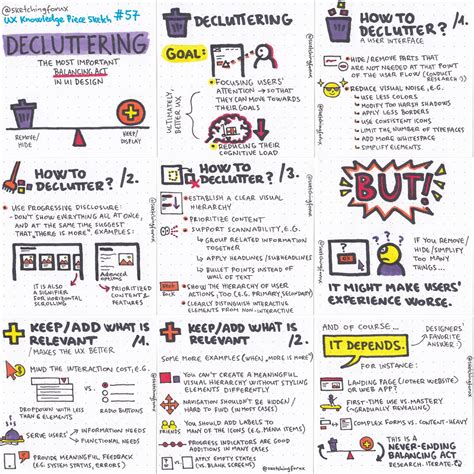 @sketchingforux
UX Knowledge Piece Sketch #57
DECLUTTERING
THE MOST IMPORTANT
BALANCING ACT
IN UI DESIGN
REMOVE/
HIDE
KEEP/
DISPLAY
DECLUTTERING
GOAL:
FOCUSING USERS'
ATTENTION → SO THAT
THEY CAN MOVE TOWARDS
THEIR GOALS
ULTIMATELY,
BETTER UX
REDUCING THEIR
COGNITIVE LOAD
@sketchingforux
HOW TO
DECLUTTER? /1.
A USER INTERFACE
HIDE/REMOVE PARTS THAT
ARE NOT NEEDED AT THAT POINT
OF THE USER FLOW (CONDUCT
RESEARCH!)
REDUCE VISUAL NOISE, E.G.
• USE LESS COLORS
• MODIFY TOO HARSH SHADOWS
• APPLY LESS BORDERS
• USE CONSISTENT ICONS
• LIMIT THE NUMBER OF TYPEFACES
• ADD MORE WHITESPACE
• SIMPLIFY ELEMENTS
@sketchingforux
HOW TO
DECLUTTER? /2.
• USE PROGRESSIVE DISCLOSURE:
- DON'T SHOW EVERYTHING ALL AT ONCE,
AND AT THE SAME TIME SUGGEST
THAT "THERE IS MORE". EXAMPLES:
Advanced
options
IT IS ALSO
A SIGNIFIER
FOR HORIZONTAL
SCROLLING
PRIORITIZED
CONTENT &
FEATURES
HOW TO
DECLUTTER? /3.
ESTABLISH A CLEAR VISUAL
HIERARCHY
• PRIORITIZE CONTENT
SUPPORT SCANNABILITY, E.G.
• GROUP RELATED INFORMATION
TOGETHER
• APPLY HEADLINES/SUBHEADLINES
• BULLET POINTS INSTEAD OF
WALL OF TEXT
Next
Back
SHOW THE HIERARCHY OF USER
ACTIONS, TOO (E.G. PRIMARY/SECONDARY)
• CLEARLY DISTINGUISH INTERACTIVE
ELEMENTS FROM NON-INTERACTIVE
@sketchingforux
BUT!
IF YOU REMOVE
/HIDE/SIMPLIFY
TOO MANY
THINGS...
IT MIGHT MAKE USERS'
EXPERIENCE WORSE.
@sketchingforux
KEEP/ADD WHAT IS
RELEVANT /1.
/MAKES THE UX BETTER
MIND THE INTERACTION COST, E.G.
VS.
DROPDOWN WITH LESS
THAN 5 ELEMENTS
RADIO BUTTONS
SERVE USERS'
INFORMATION NEEDS
FUNCTIONAL NEEDS
PROVIDE MEANINGFUL FEEDBACK
@sketchingforux
KEEP/ADD WHAT IS
RELEVANT /2.
SOME MORE EXAMPLES (WHEN "MORE IS MORE")
YOU CAN'T CREATE A MEANINGFUL
VISUAL HIERARCHY WITHOUT STYLING
ELEMENTS DIFFERENTLY
NAVIGATION SHOULDN'T BE HIDDEN/
HARD TO FIND (IN MOST CASES)
YOU SHOULD ADD LABELS TO
MOST OF THE ICONS (E.G. MENU ITEMS)
PROGRESS INDICATORS ARE GOOD
ADDITIONS IN MANY CASES
APPLY EMPTY STATES
(VS. BLANK SCREENS)
@sketchingforux
AND OF COURSE...
DESIGNERS'
FAVORITE
ANSWER :)
IT DEPENDS.
FOR INSTANCE:
LANDING PAGE (/OTHER WEBSITE)
OR WEB APP?
FIRST-TIME USE VS. MASTERY
(→ GRADUALLY REVEALING)
COMPLEX FORMS VS. CONTENT-HEAVY
THIS IS A
NEVER-ENDING
BALANCING ACT
@sketchingforux